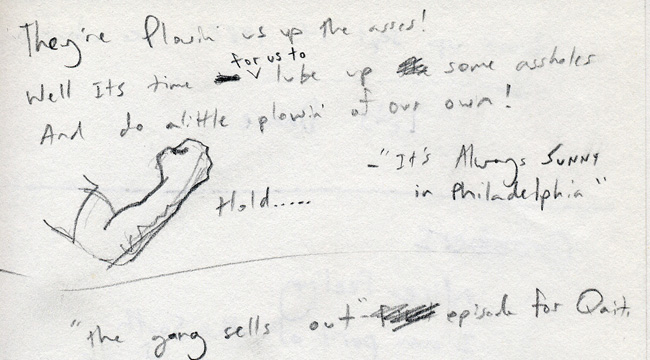 They're Plowin' us up the asses!
Well Its time for us to lube up some assholes
And do alittle plowin' of our own!
-"It's Always SUNNY
in Philadelphia"
Hold.....
"the gang sells out"- episode for Qait.